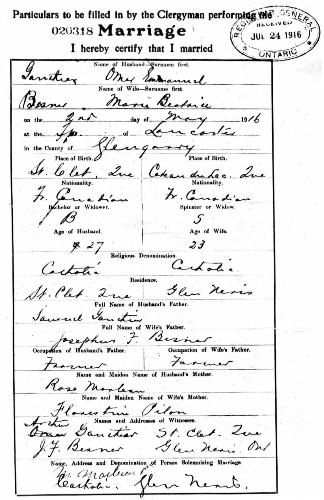 Particulars to be filled in by the Clergyman performing the
020318 Marriage
REGISTRAR GENERAL
RECEIVED
JUL 24 1916
ONTARIO
I hereby certify that I married
Name of Husband—Surname first.
Omer Emmanuel
Name of Wife—Surname first.
Besner Marie Beatrice
on the 2nd day of May 1916
at the Tp. of Lancaster
in the County of Glengarry
Place of Birth. Place of Birth.
St. Clet, Que Coteau du Lac, Que
Nationality. Nationality.
Fr. Canadian Fr. Canadian
Bachelor or Widower. Spinster or Widow.
B S
Age of Husband. Age of Wife.
27 23
Religious Denomination.
Catholic Catholic
Residence.
St. Clet Que Glen Nevis
Full Name of Husband's Father.
Samuel
Full Name of Wife's Father.
Josephus F. Besner
Occupation of Husband's Father. Occupation of Wife's Father.
Farmer Farmer
Name and Maiden Name of Husband's Mother.
Rose
Name and Maiden Name of Wife's Mother.
Florestine Pilon
Names and Addresses of Witnesses.
St. Clet, Que
J. F. Besner Glen Nevis, Ont
Name, Address and Denomination of Person Solemnizing Marriage
Catholic. Glen Nevis.